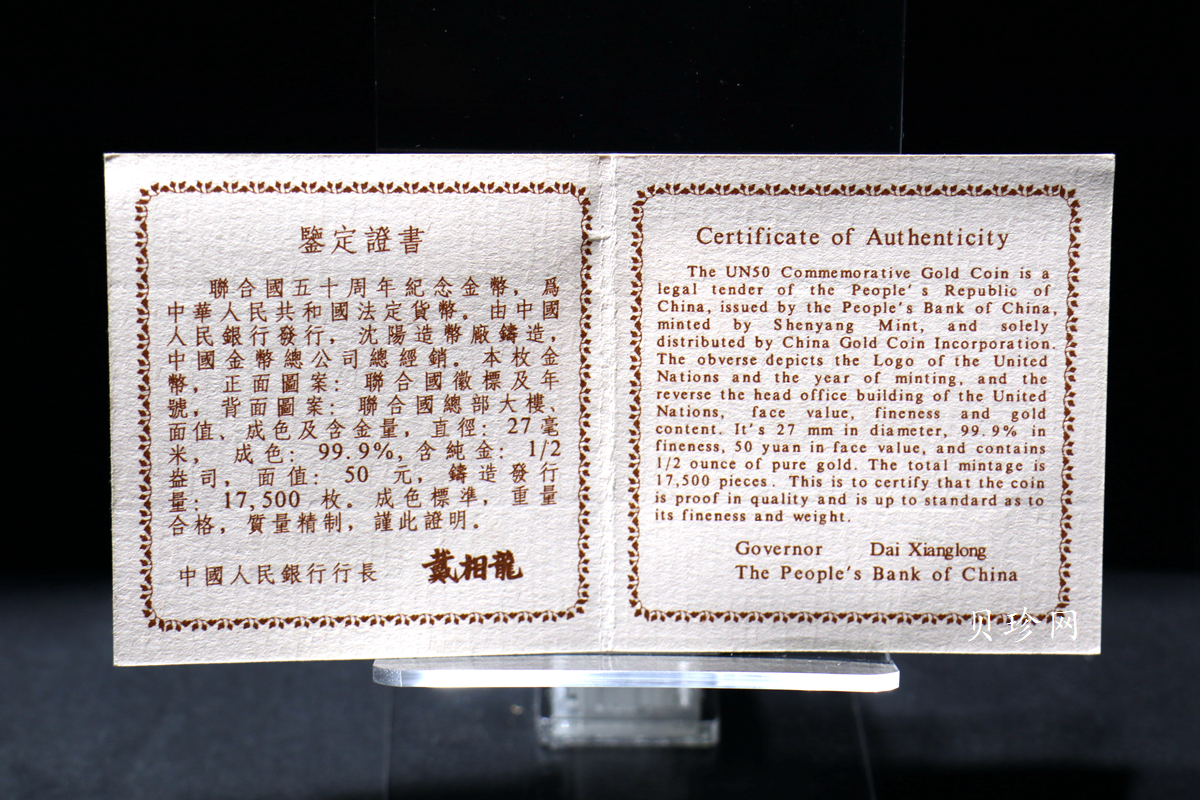 鑒定證書
聯合國五十周年紀念金幣，爲
中華人民共和國法定貨幣。由中國
人民銀行發行，沈陽造幣廠鑄造，
中國金幣總公司總經銷。本枚金
幣，正面圖案：聯合國徽標及年
號，背面圖案：聯合國總部大樓、
面值、成色及含金量，直徑：27毫
米，成色：99.9%,含純金：1/2
盎司，面值：50 元，鑄造發行
量：17,500 枚。成色標準，重量
合格，質量精制，謹此證明。
中國人民銀行行長 戴相龍
Certificate of Authenticity
The UN50 Commemorative Gold Coin is a
legal tender of the People's Republic of
China, issued by the People's Bank of China,
minted by Shenyang Mint, and solely
distributed by China Gold Coin Incorporation.
The obverse depicts the Logo of the United
Nations and the year of minting, and the
reverse the head office building of the United
Nations, face value, fineness and gold
content. It's 27 mm in diameter, 99.9% in
fineness, 50 yuan in face value, and contains
1/2 ounce of pure gold. The total mintage is
17,500 pieces. This is to certify that the coin
is proof in quality and is up to standard as to
its fineness and weight.
Governor Dai Xianglong
The People's Bank of China
贝珍网